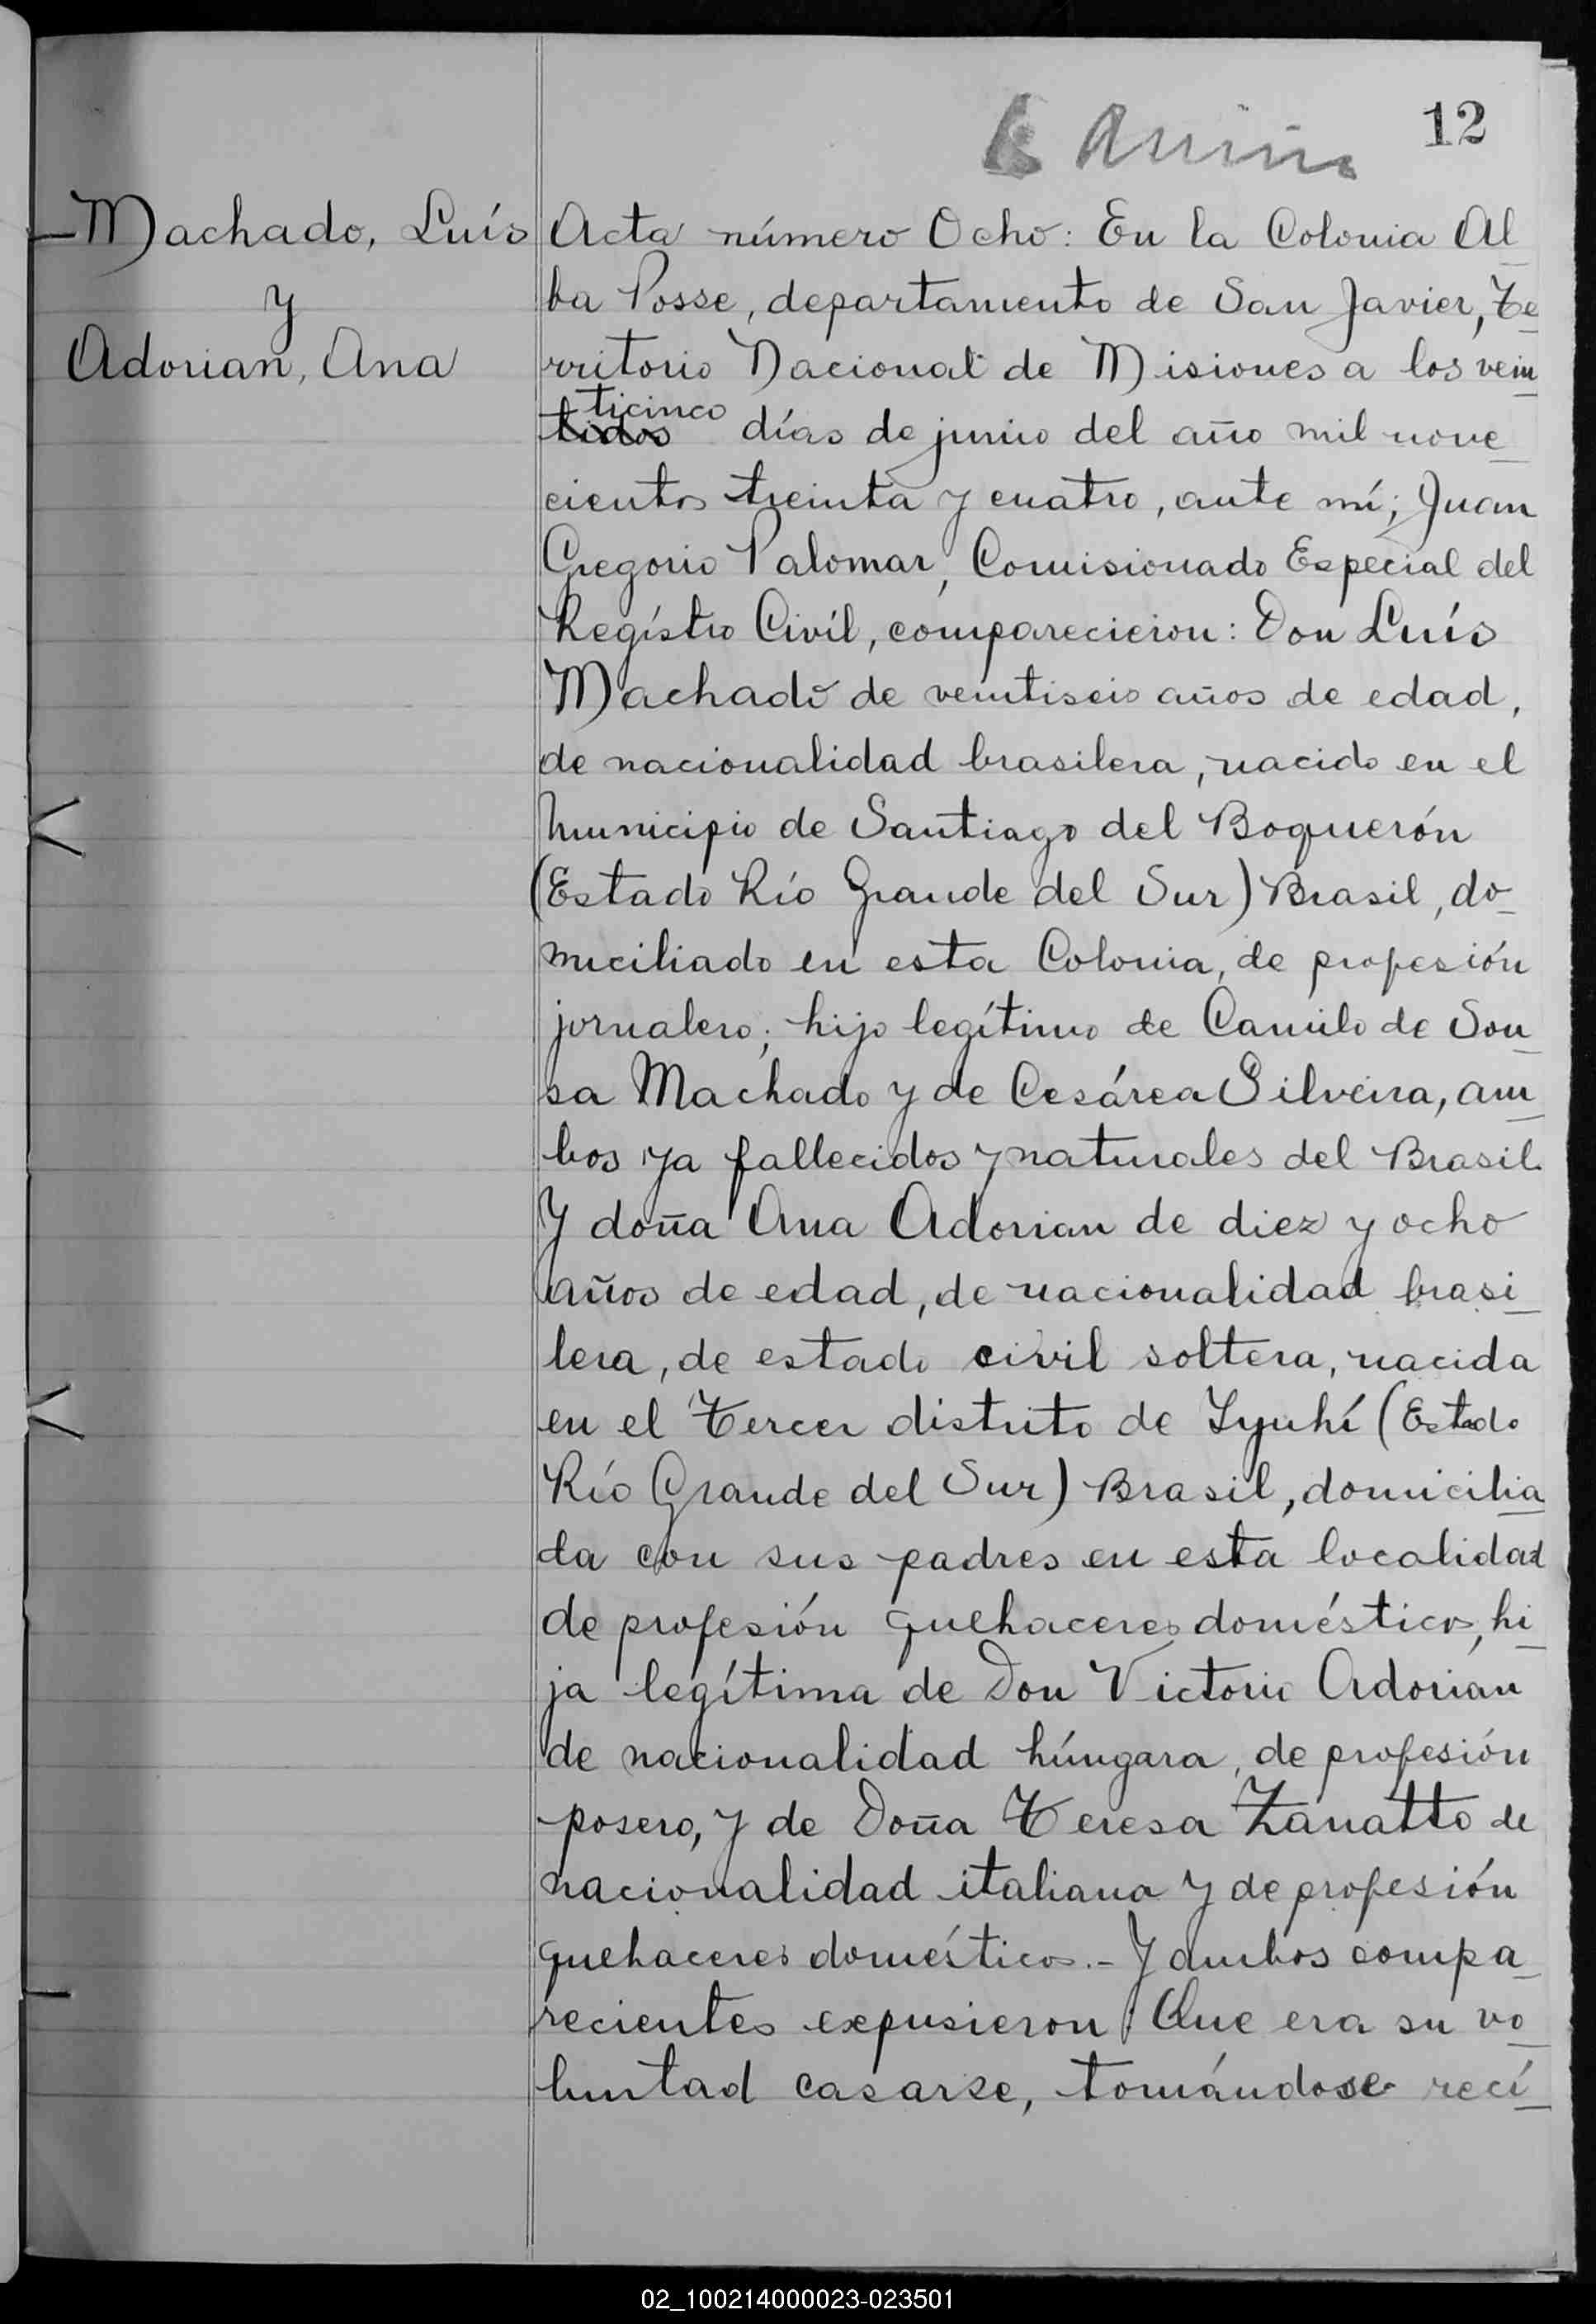 12
Machado, Luís
y
Adorian, Ana
Acta número Ocho: En la Colonia Al
ba Posse, departamento de San Javier, Te
rritorio Nacional de Misiones a los vein
ticinco
tidos días de junio del año mil nove
cientos treinta y cuatro, ante mí; Juan
Gregorio Palomar, Comisionado Especial del
Regístro Civíl, comparecieron: Don Luís
Machado de veintiseis años de edad,
de nacionalidad brasilera, nacido en el
municipio de Santiago del Boquerón
(Estado Río Grande del Sur) Brasil, do
miciliado en esta Colonia, de profesión
jornalero; hijo legítimo de Camilo de Sou
sa Machado y de Cesárea Silveira, am
bos ya fallecidos y naturales del Brasil.
Y doña Ana Adorian de diez y ocho
años de edad, de nacionalidad brasi
lera, de estado civil soltera, nacida
en el Tercer distrito de Yyuhí (Estado
Río Grande del Sur) Brasil, domicilia
da con sus padres en esta localidad
de profesión quehaceres domésticos, hi
ja legítima de Don Victorio Adorian
de nacionalidad húngara, de profesión
posero, y de Doña Teresa Zanatto de
nacionalidad italiana y de profesión
quehaceres domésticos.- Y ambos compa
recientes expusieron: Que era su vo
luntad casarse, tomándose recí
02_100214000023-023501